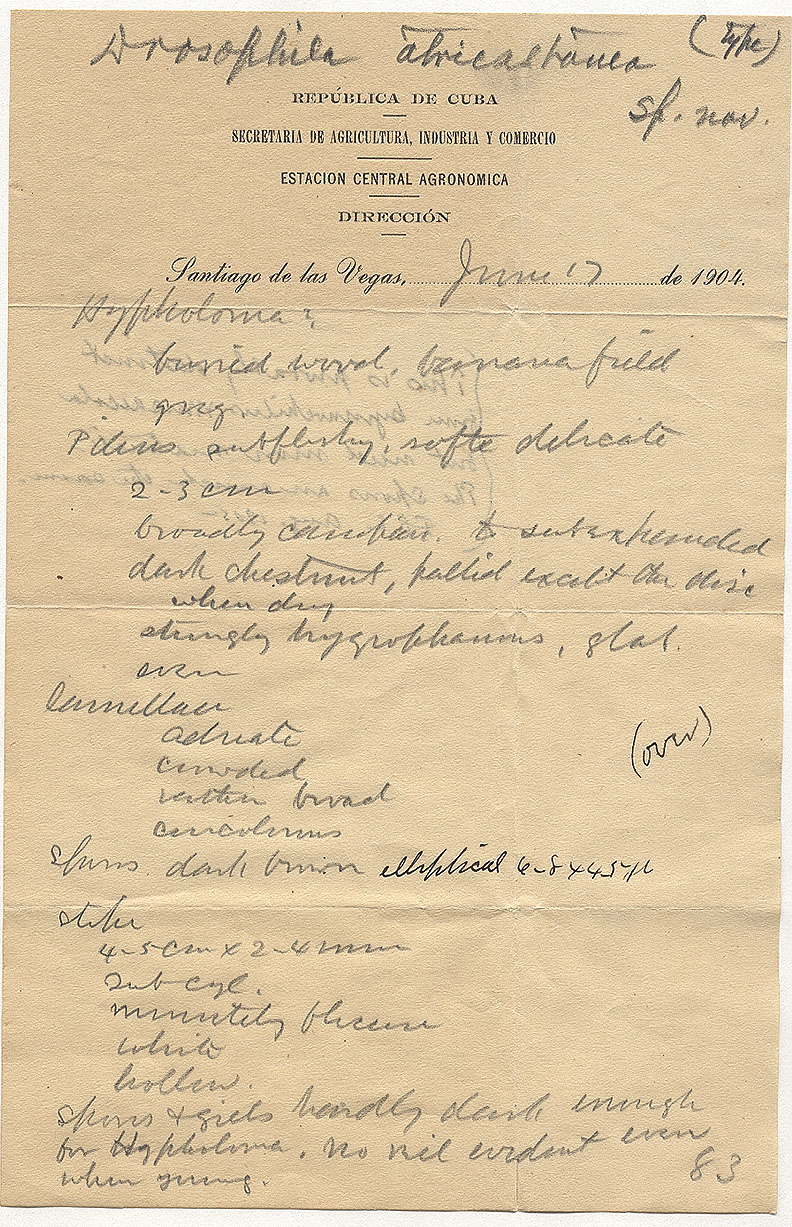 Drosophila atricastanea (Type)
sp. nov.
REPÚBLICA DE CUBA
SECRETARIA DE AGRICULTURA, INDUSTRIA Y COMERCIO
ESTACION CENTRAL AGRONOMICA
DIRECCIÓN
Santiago de las Vegas, June 17 de 1904.
Hypholoma?
buried wood, banana field
greg
Pileus subfleshy, softe delicate
2-3 cm
broadly campan. to subexpanded
dark chestnut, pallid except the disc
when dry
strongly hygrophanous, glab.
even
lamellae
adnate
crowded
rather broad
concolorous
(over)
spores dark brown elliptical 6-8 x 4-5 µ
stipe
4-5 cm x 2-4 mm
sub cyl.
minutely floccose
white
hollow.
spores & gills hardly dark enough
for Hypholoma. no veil evident even
when young.
83